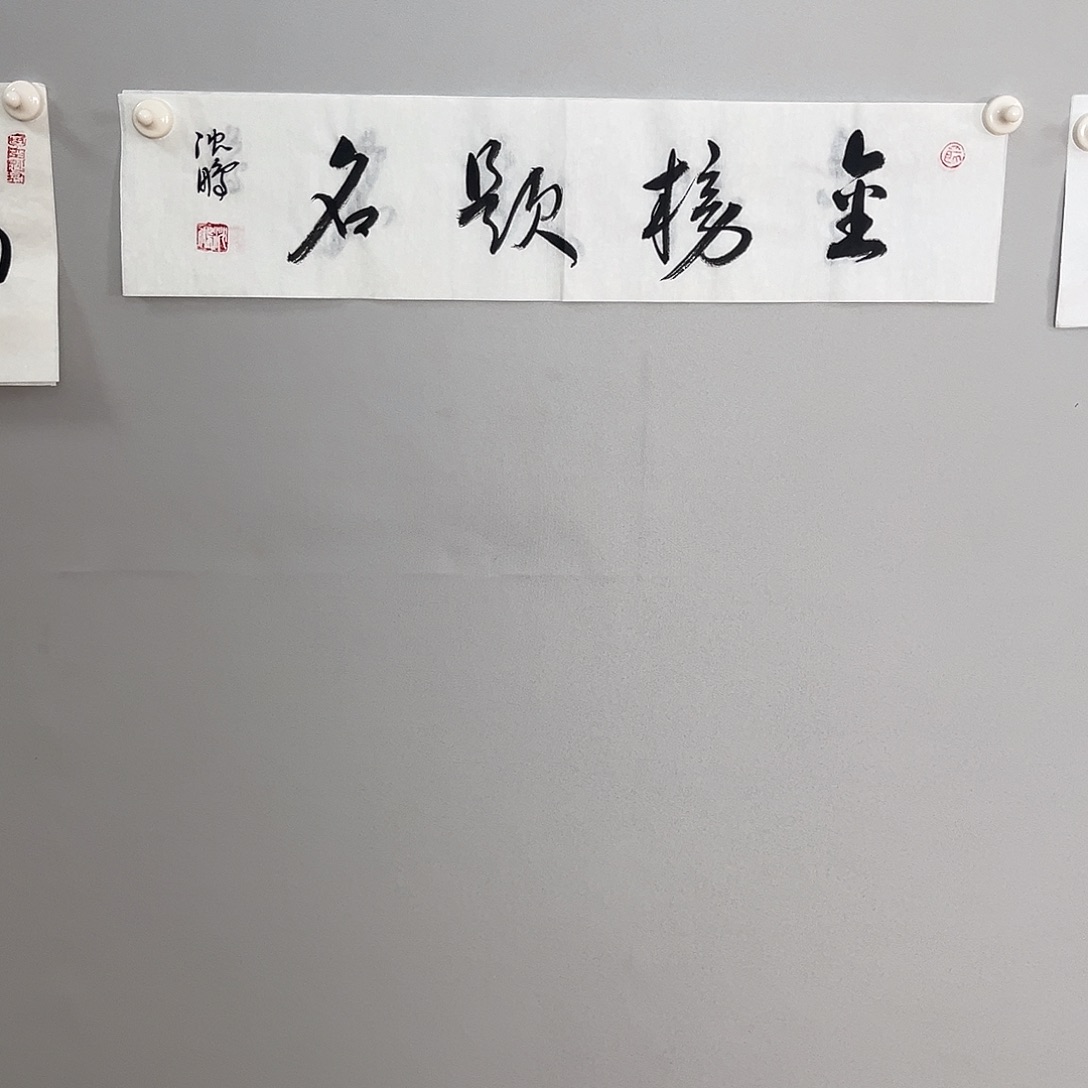 金榜题名
沈鹏